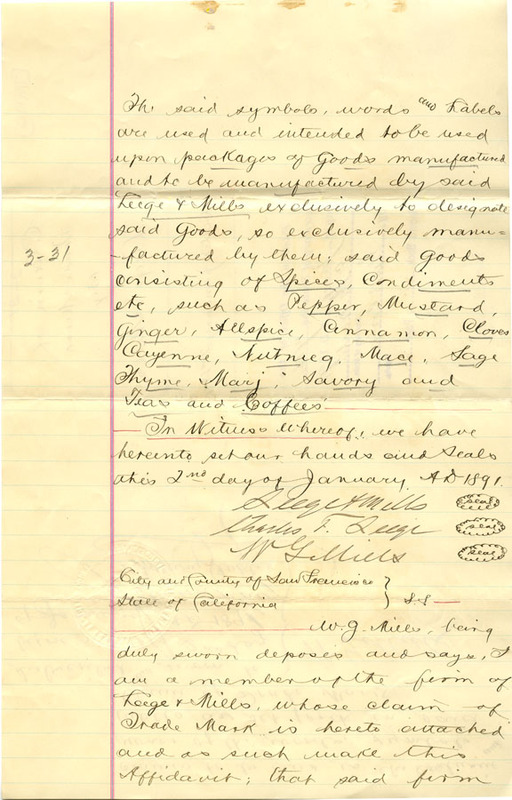 The said symbols, words and Labels
are used and intended to be used
upon packages of Goods manufactured
and to be manufactured by said
Leege & Mills exclusively to designate
said Goods, so exclusively manu-
-factured by them; said Goods
3-31
consisting of Spices, Condiments
etc, such as Pepper, Mustard,
Ginger, Allspice, Cinnamon, Cloves
Cayenne, Nutmeg, Mace, Sage
Thyme, Marj; Savory and
Teas and Coffees
In Witness whereof, we have
hereinto set our hands and Seals
this 2nd day of January A.D 1891.
Leege & Mills seal
Charles F. Leege seal
W G Mills seal
City and County of San Francisco
State of California } S.S
W. G. Mills, being
duly sworn deposes and says, I
am a member of the firm of
Leege & Mills, whose claim of
Trade Mark is hereto attached
and as such make this
Affidavit; that said firm